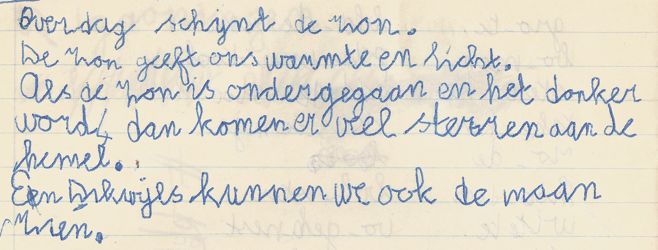 Overdag schijnt de zon.
De zon geeft ons warmte en licht.
Als de zon is ondergegaan en het donker
wordt, dan komen er veel sterren aan de
hemel.
En dikwijls kunnen we ook de maan
zien.